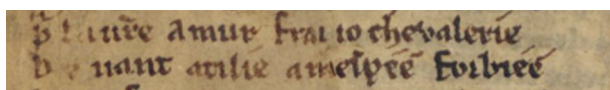 amur frai io chevalerie
uant atilie a mespee forbiee